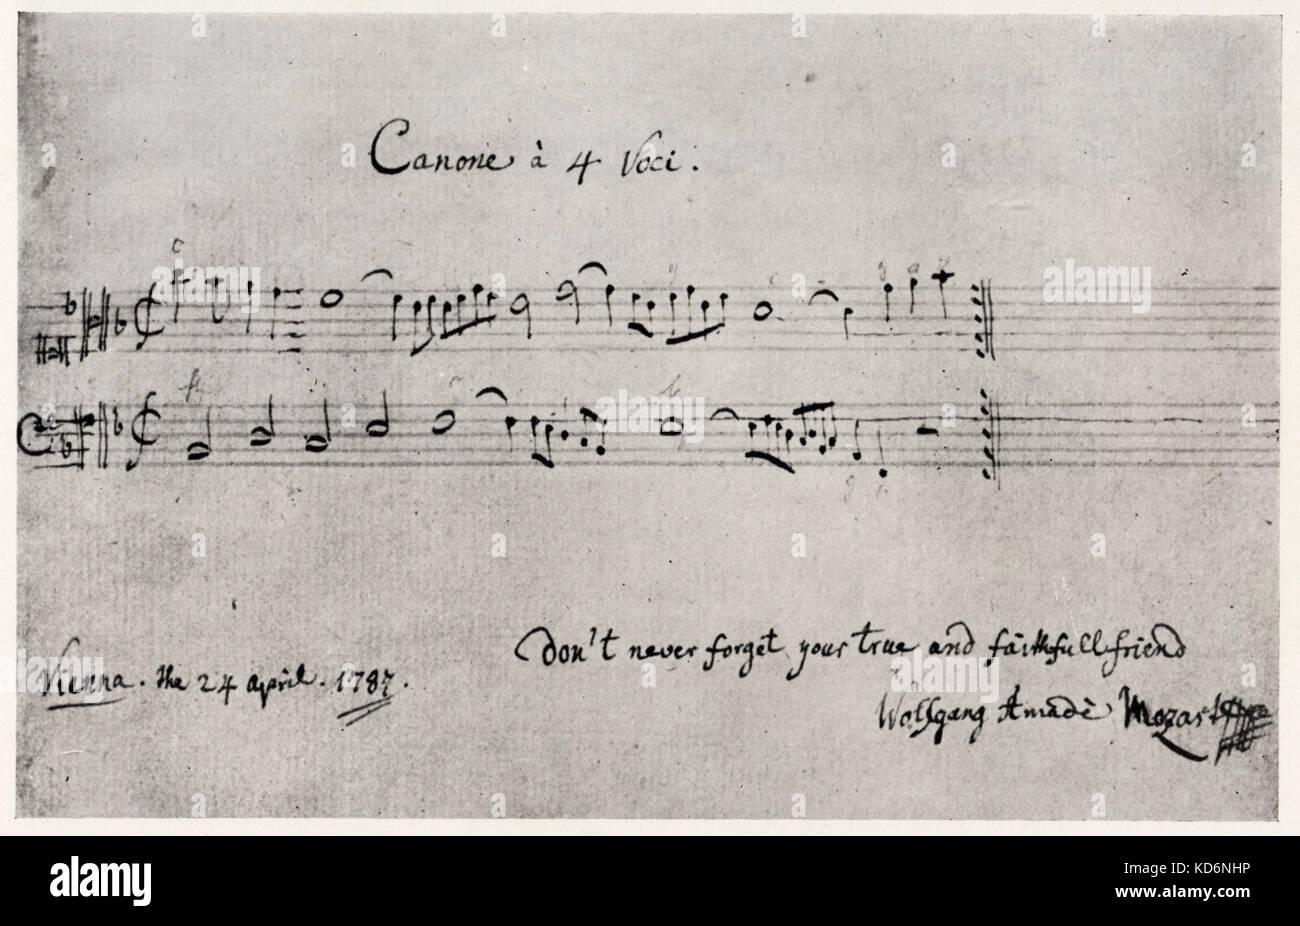 Canone à 4 Voci.
Don't never forget your true and faithfull friend
Vienna. the 24 april. 1787.
Wolfgang Amadè Mozart
alamy stock photo
KD6NHP
www.alamy.com